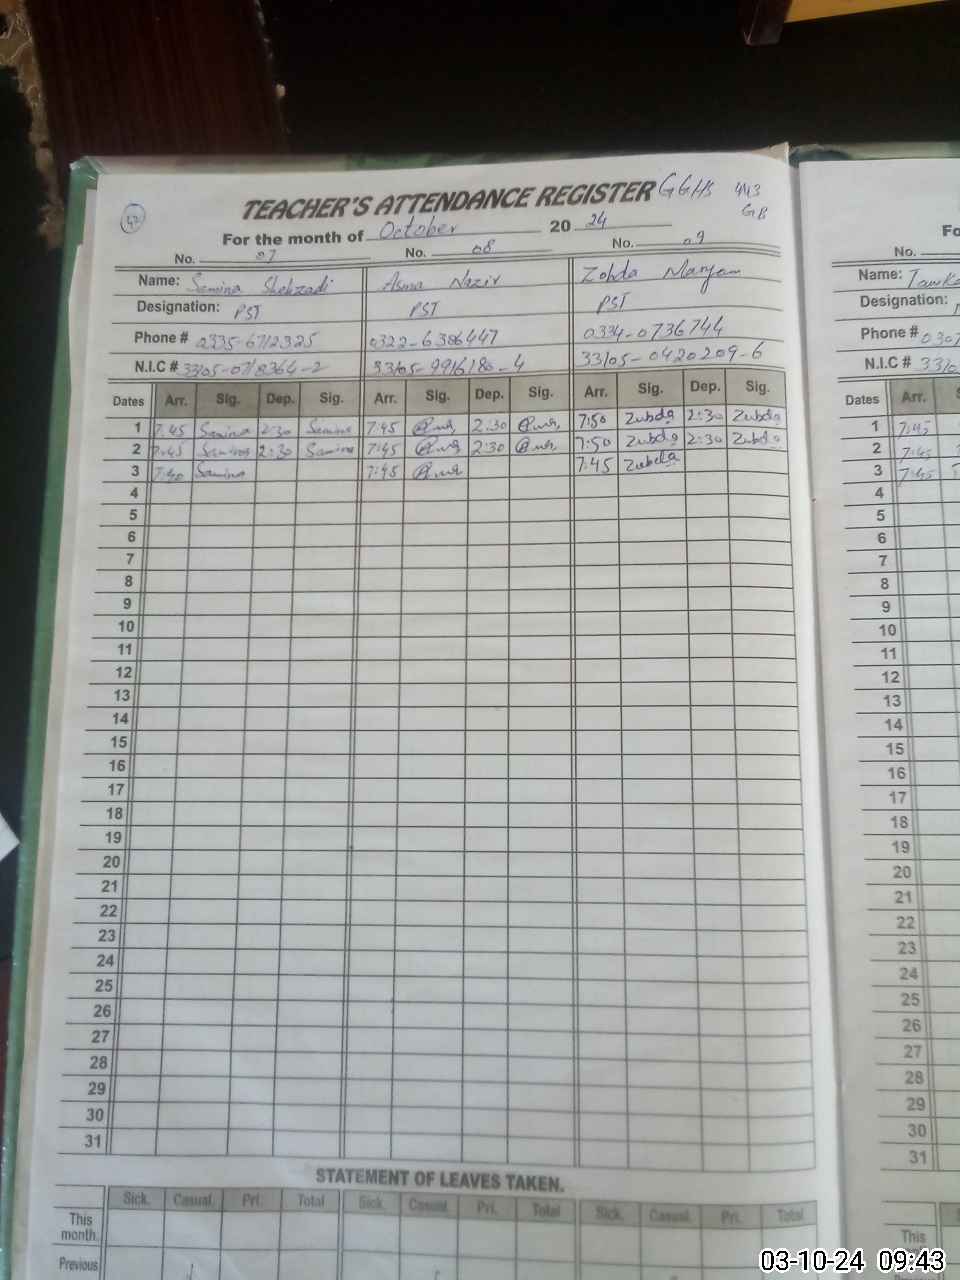 TEACHER'S ATTENDANCE REGISTER GGHS 443
GB
42
For the month of October 2024
No. 07 No. 08 No. 09
Name: Samina Shehzadi Asma Nazir Zohda Maryam
Designation: PST PST PST
Phone # 0335-6712325 0322-6386447 0334-0736744
N.I.C # 33105-0718364-2 33105-9916180-4 33105-0420209-6
Dates Arr. Sig. Dep. Sig. Arr. Sig. Dep. Sig. Arr. Sig. Dep. Sig.
1 7:45 Samina 2:30 Samina 7:45 2:30 7:50 Zubda 2:30 Zubda
2 7:45 Samina 2:30 Samina 7:45 2:30 7:50 Zubda 2:30 Zubda
3 7:40 Samina 7:45 7:45 Zubda
4
5
6
7
8
9
10
11
12
13
14
15
16
17
18
19
20
21
22
23
24
25
26
27
28
29
30
31
STATEMENT OF LEAVES TAKEN.
Sick. Casual. Pri. Total Sick. Casual. Pri. Total Sick. Casual. Pri. Total
This
month.
Previous
No.
Name:
Designation:
Phone # 0307
N.I.C # 3310
Dates Arr.
1 7:45
2 7:45
3 7:45
4
5
6
7
8
9
10
11
12
13
14
15
16
17
18
19
20
21
22
23
24
25
26
27
28
29
30
31
This
03-10-24 09:43